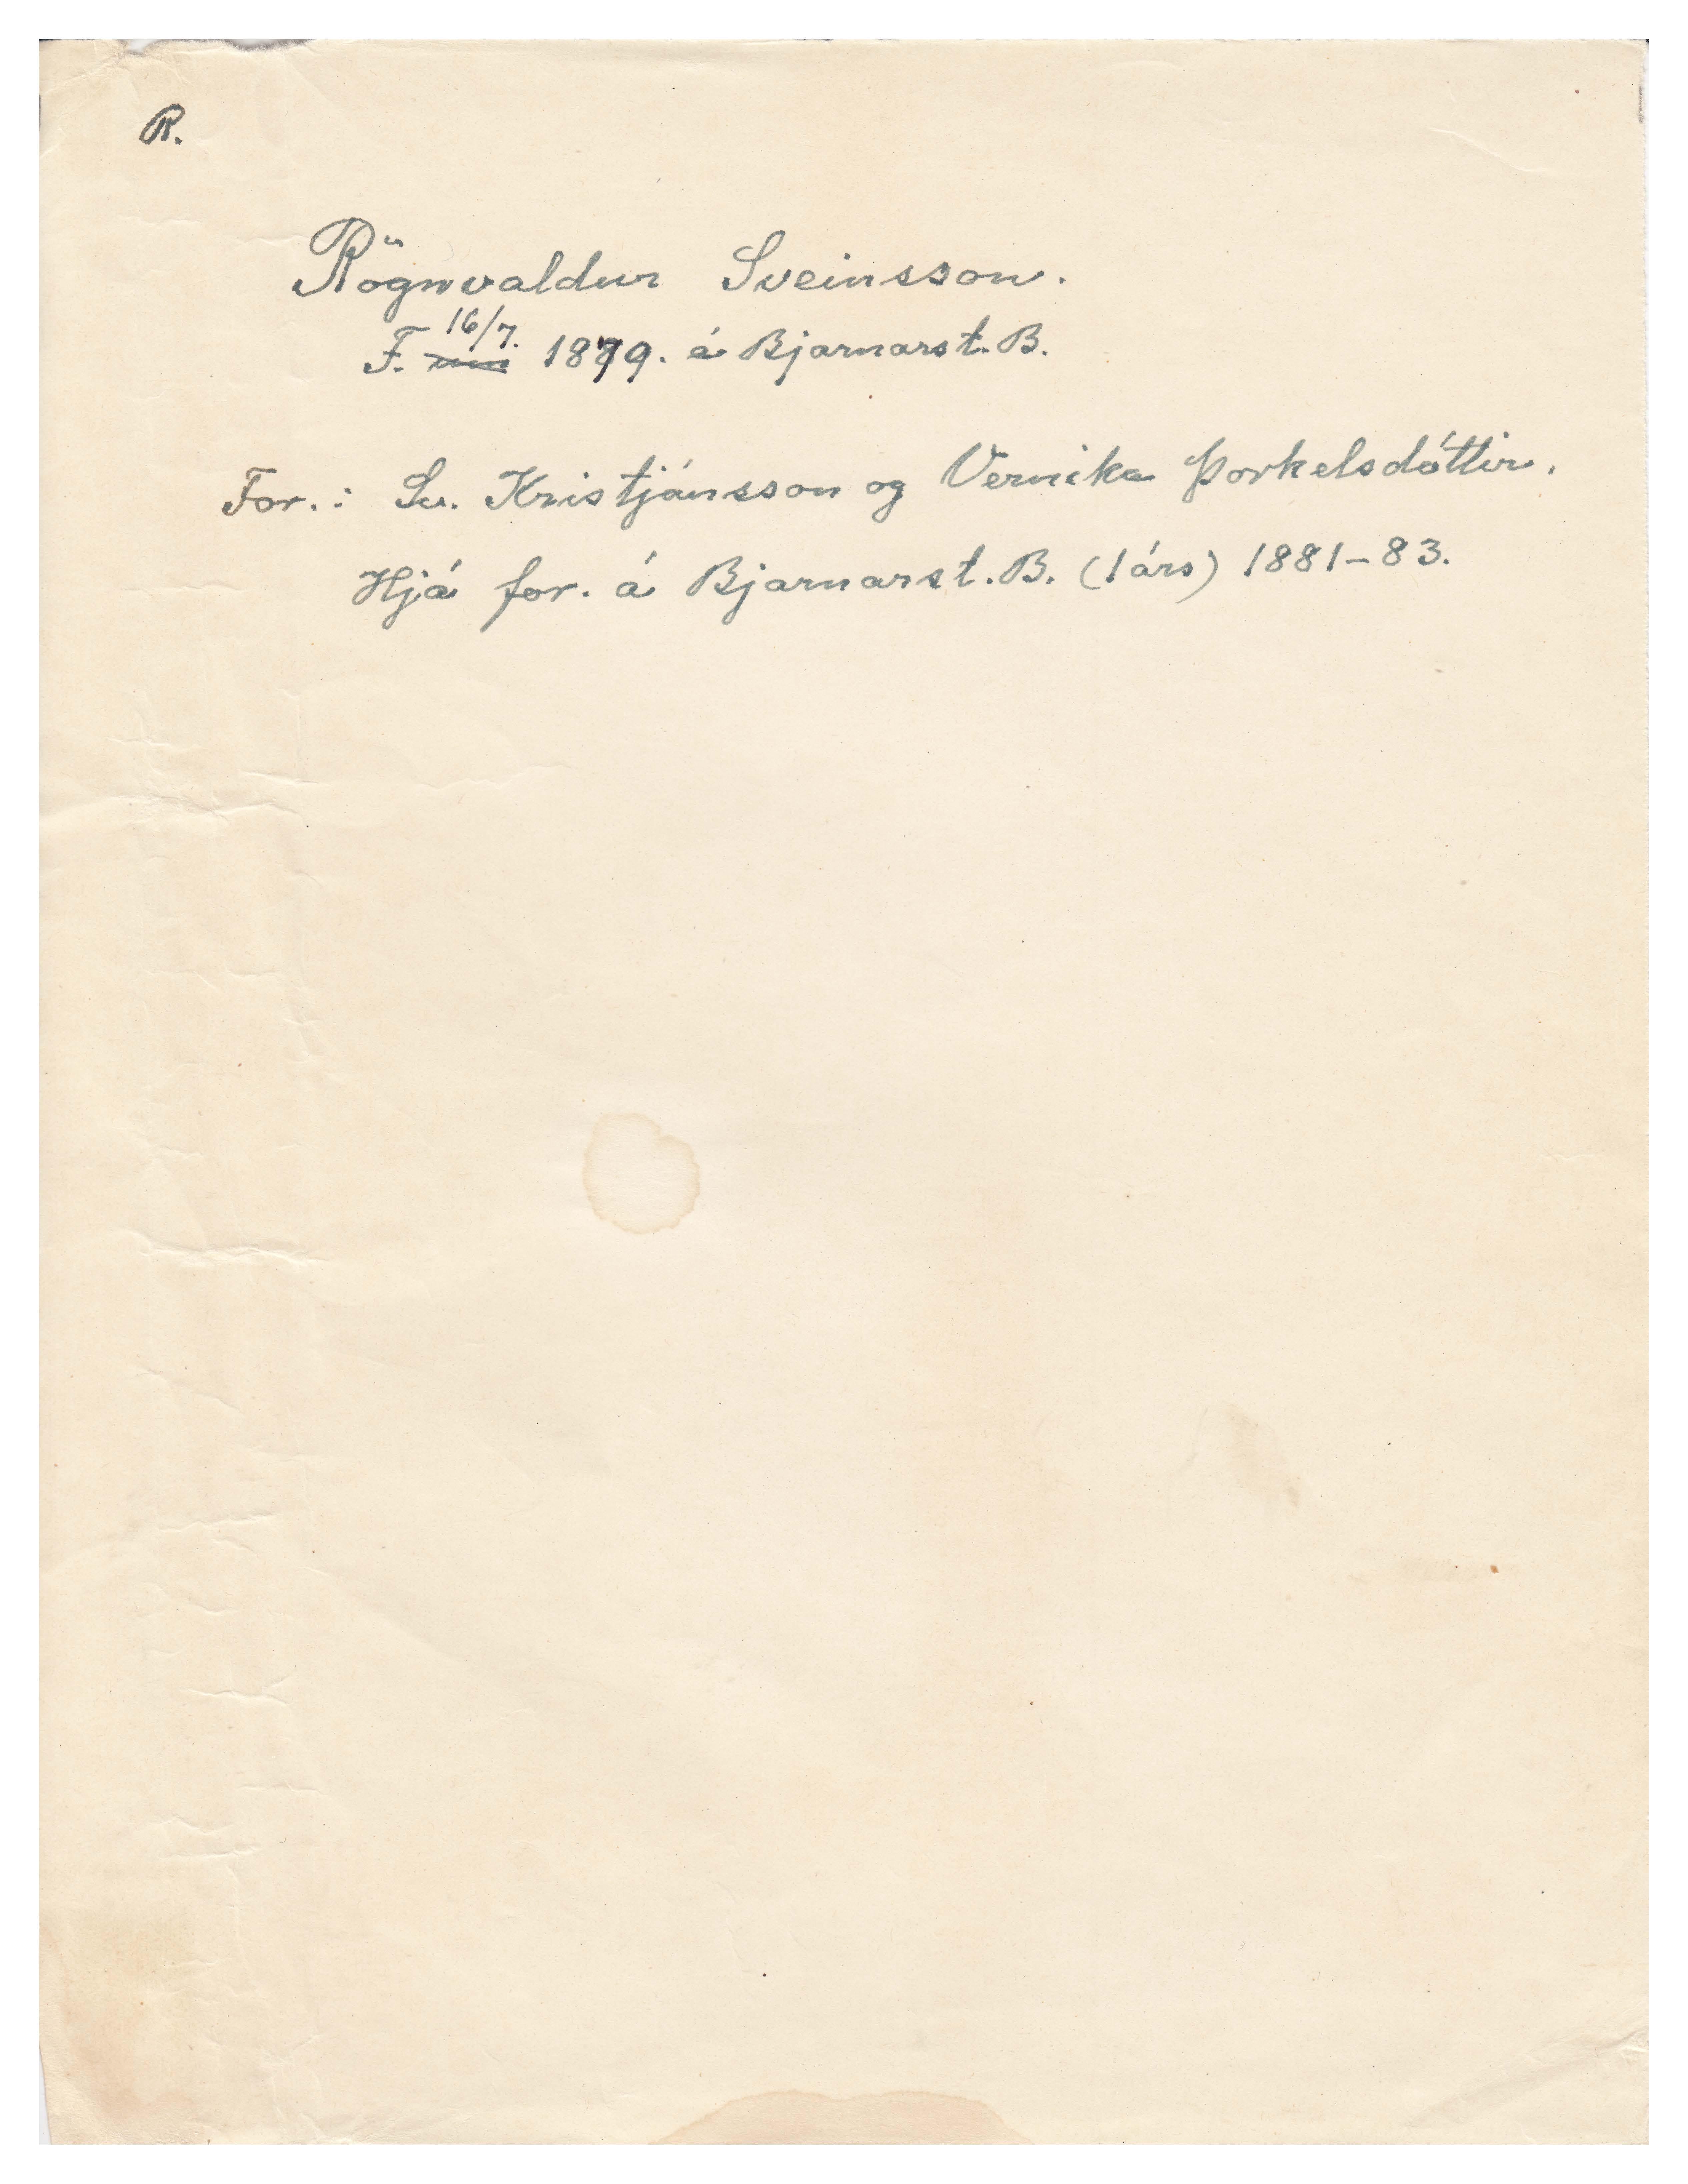 R.
Rögnvaldur Sveinsson.
16/7.
F. um 1879. á Bjarnarst. B.
For.: Sv. Kristjánsson og Vernika Þorkelsdóttir.
Hjá for. á Bjarnarst. B. (1 árs) 1881-83.